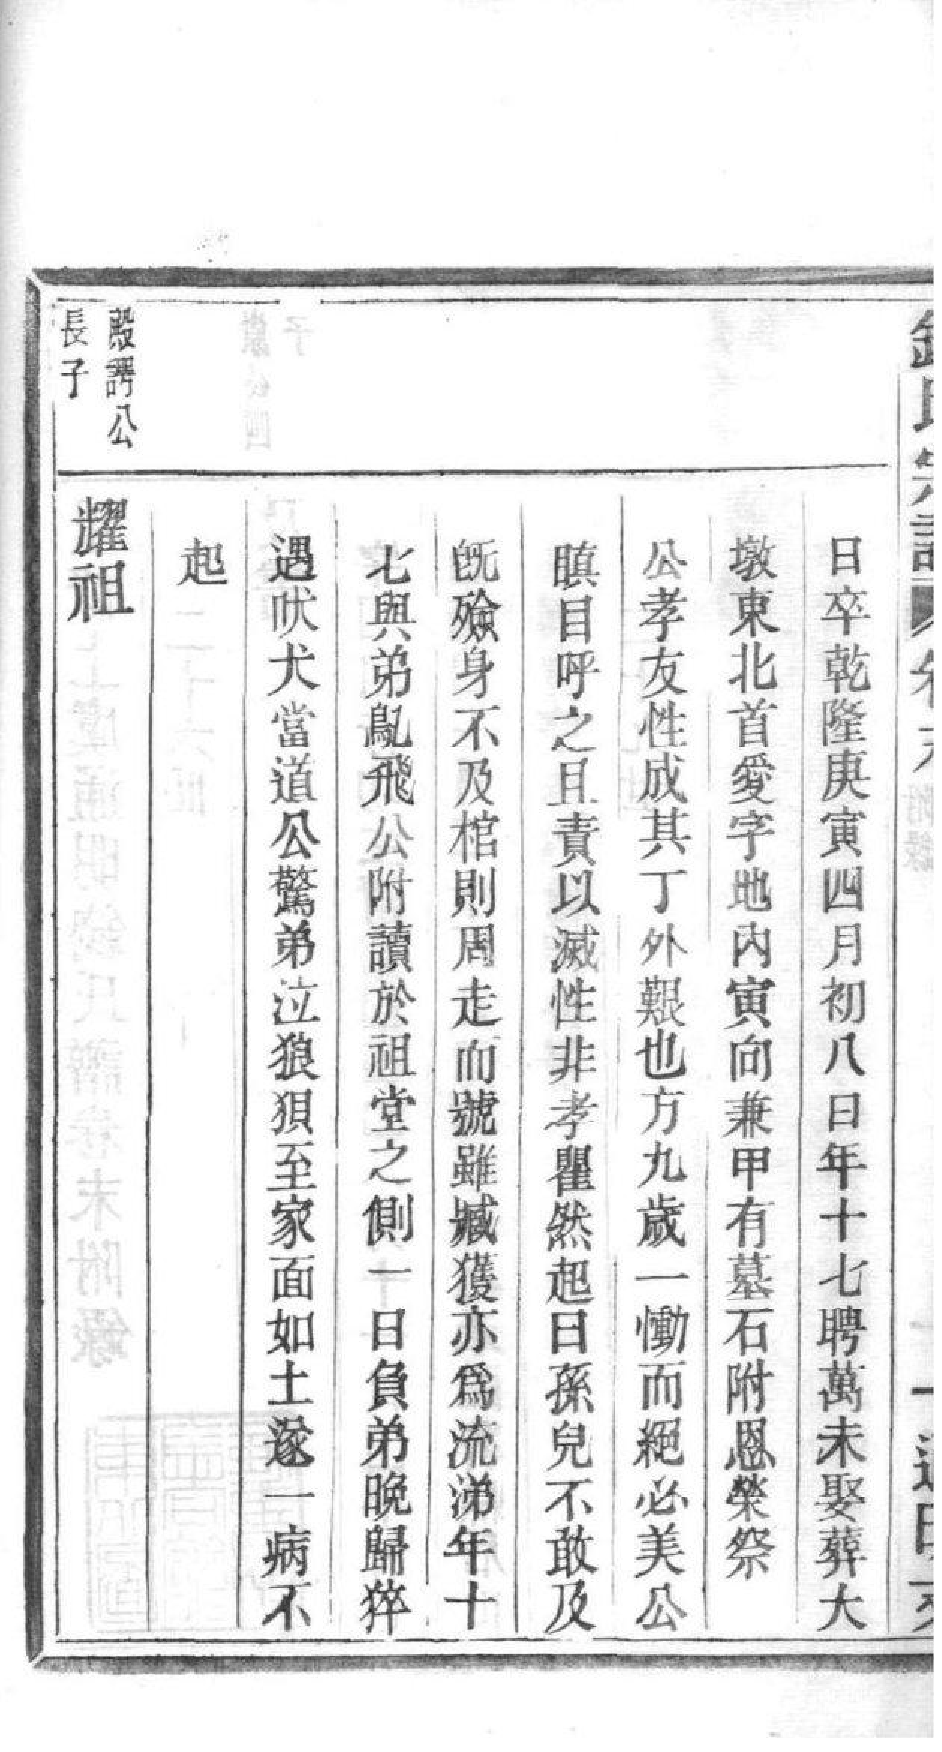 日卒乾隆庚寅四月初八日年十七聘萬未娶葬大
墩東北首愛字地内寅向兼甲有墓石附恩榮祭
公孝友性成其丁外艱也方九歲一慟而絕必美公
瞋目呼之且責以滅性非孝瞿然起曰孫兒不敢及
既殮身不及棺則周走而號雖臧獲亦爲流涕年十
七與弟鳧飛公附讀於祖堂之側一日負弟晚歸猝
遇吠犬當道公驚弟泣狼狽至家面如土遂一病不
起
殿諤公
長子
耀祖